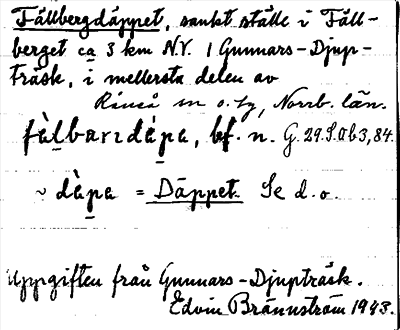 Fällbergdäppet, sankt ställe i Fäll-
berget ca 3 km N.V. / Gunnars-Djup-
träsk, i mellersta delen av
Råneå sn o. tg, Norrb. län.
fä̀lbarɪdä́pa, bf. n. G. 29. S. ob 3, 84.
~ dä̀pa = Däppet. Se d. o.
Uppgiften från Gunnars-Djupträsk.
Edvin Brännström 1943.